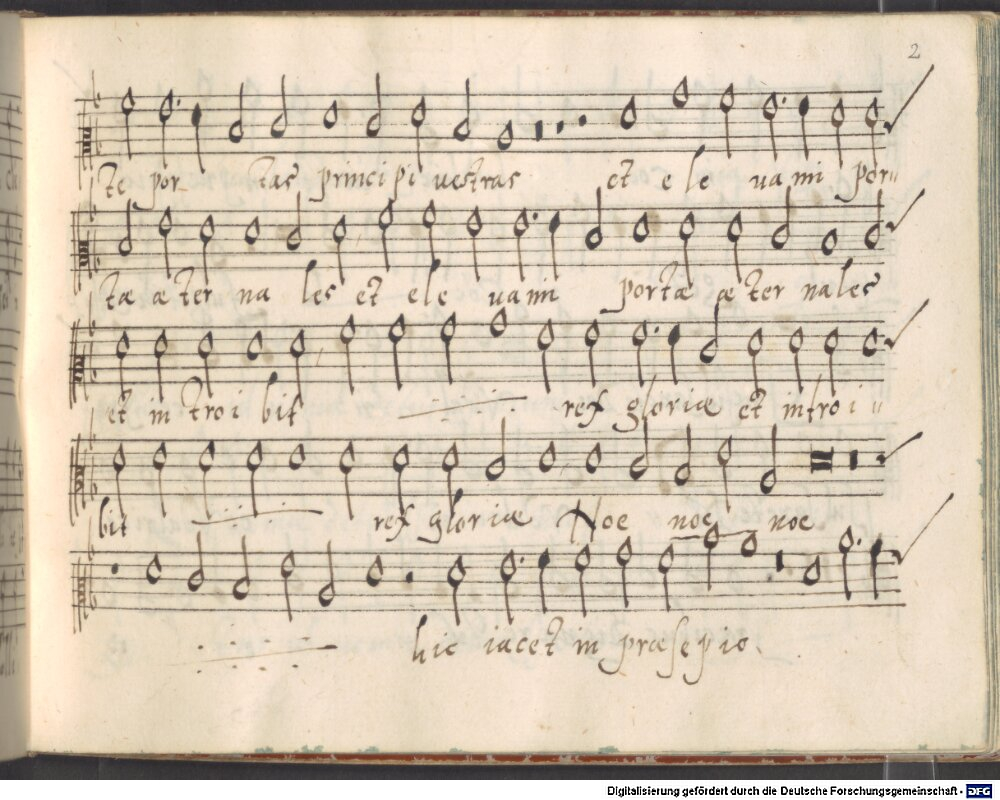 2
te por tas principi vestras et e le va mi por
tæ æ ter na les et ele va mi portæ æ ter nales
et in troi bit rex gloriæ et introi
bit rex gloriæ Noe noe noe
hic iacet in præsepio
Digitalisierung gefördert durch die Deutsche Forschungsgemeinschaft - DFG